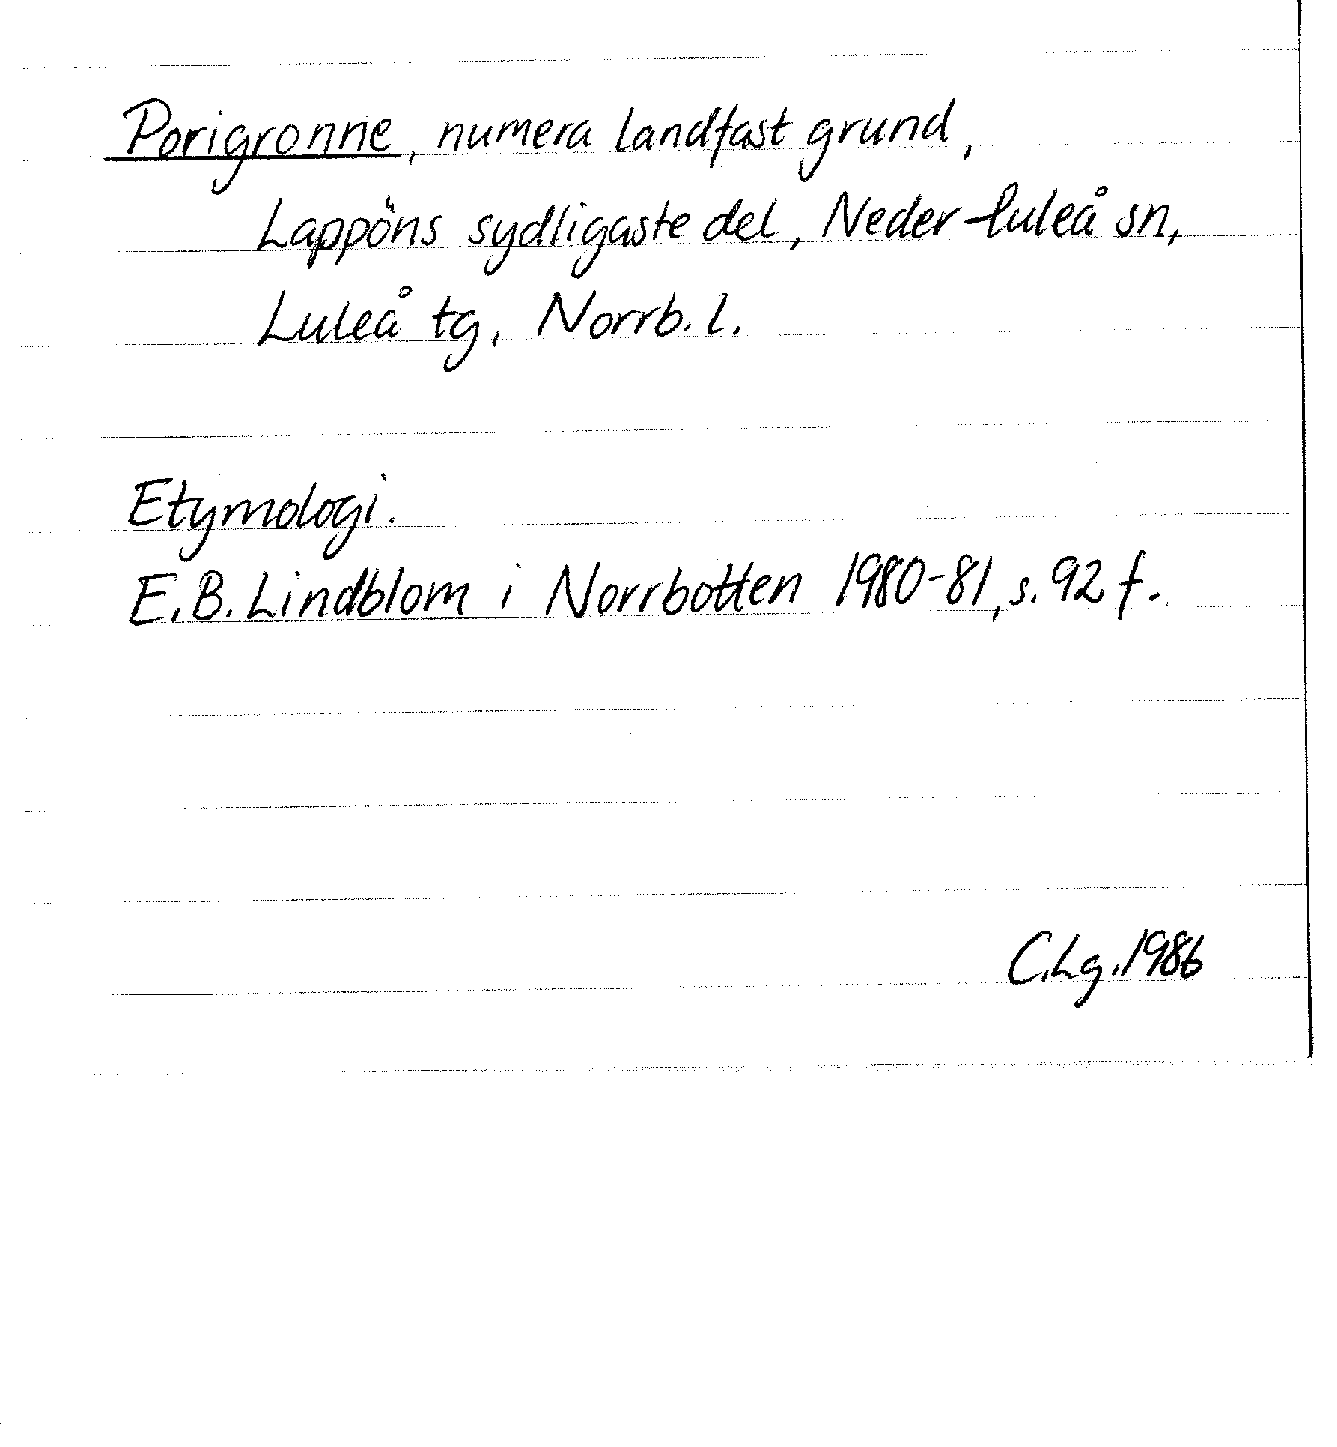 Porigronne, numera landfast grund,
Lappöns sydligaste del, Neder-luleå sn,
Luleå tg, Norrb. l.
Etymologi.
E.B. Lindblom i Norrbotten 1980-81, s. 92 f.
C.Lg. 1986